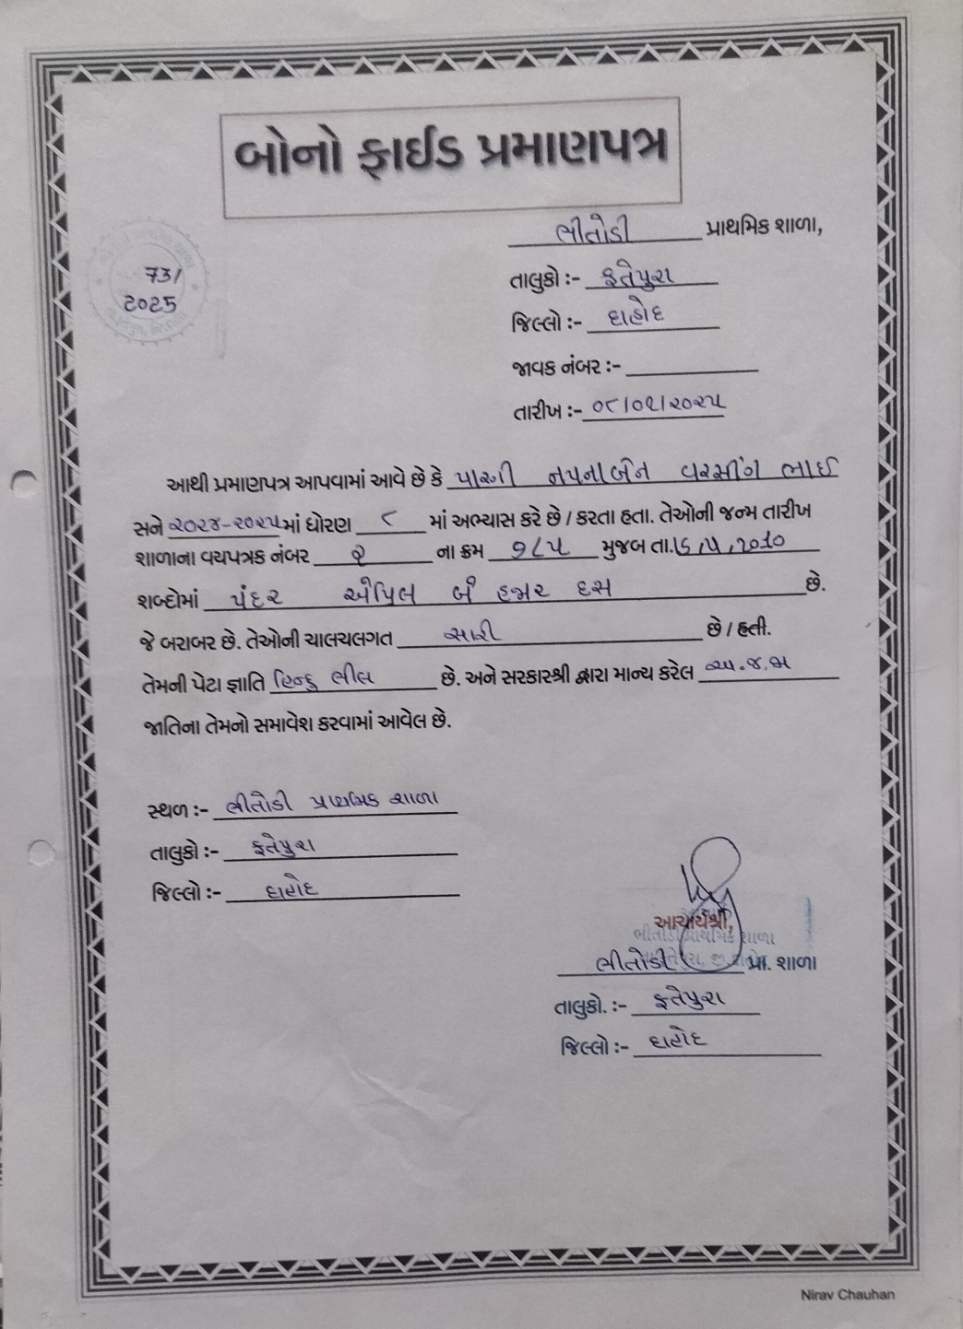 બોનો ફાઈડ પ્રમાણપત્ર
ભીતોડી પ્રાથમિક શાળા,
731
2025
તાલુકો :- ફતેપુરા
જિલ્લો :- દાહોદ
જાવક નંબર :-
તારીખ :- ૦૮/૦૧/૨૦૨૫
આથી પ્રમાણપત્ર આપવામાં આવે છે કે પારગી નયનાબેન વરસીંગ ભાઈ
સને ૨૦૨૪-૨૦૨૫માં ધોરણ ૮ માં અભ્યાસ કરે છે / કરતા હતા. તેઓની જન્મ તારીખ
શાળાના વયપત્રક નંબર ૨ ના ક્રમ ૧૮૫ મુજબ તા. 2010
શબ્દોમાં પંદર એપ્રિલ બે હજાર દસ છે.
જે બરાબર છે. તેઓની ચાલચલગત સારી છે / હતી.
તેમની પેટા જ્ઞાતિ હિન્દુ ભીલ છે. અને સરકારશ્રી દ્વારા માન્ય કરેલ અ.જ.જા
જાતિના તેમનો સમાવેશ કરવામાં આવેલ છે.
સ્થળ :- ભીતોડી પ્રાથમિક શાળા
તાલુકો :- ફતેપુરા
જિલ્લો :- દાહોદ
આચાર્યશ્રી,
ભીતોડી પ્રાથમિક શાળા
ભીતોડી પ્રા. શાળા
તાલુકો. :- ફતેપુરા
જિલ્લો :- દાહોદ
Nirav Chauhan